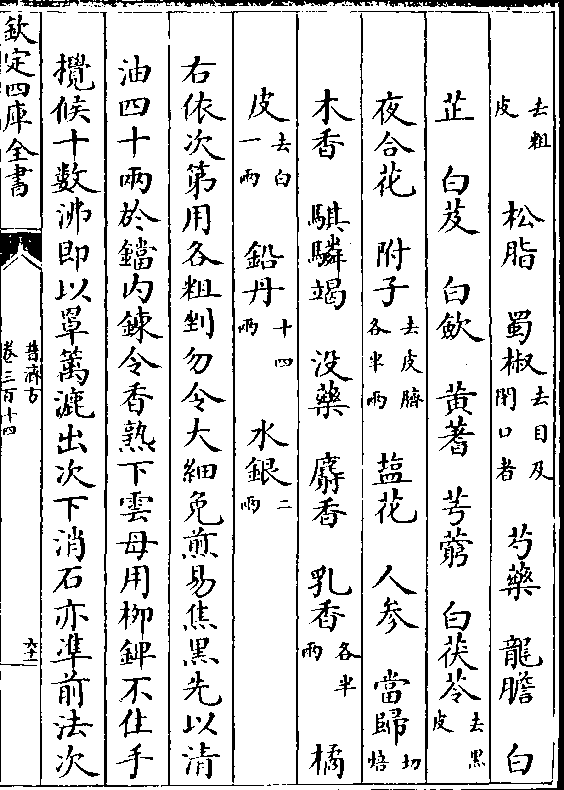 去粗皮 松脂 蜀椒去目及閉口者 芍藥 龍膽 白
芷 白芨 白歛 黃蓍 芎藭 白茯苓去黑皮
夜合花 附子去皮臍各半兩 塩花 人參 當歸切焙
木香 騏驎竭 没藥 麝香 乳香各半兩 橘
皮去白一兩 鉛丹十四兩 水銀二兩
右依次第用各粗剉勿令大細免煎易焦黑先以清
油四十兩於鐺内鍊令香熟下雲母用柳錍不住手
攪候十數沸即以罩䉉漉出次下消石亦準前法次
欽定四庫全書
普濟方
卷三百十四